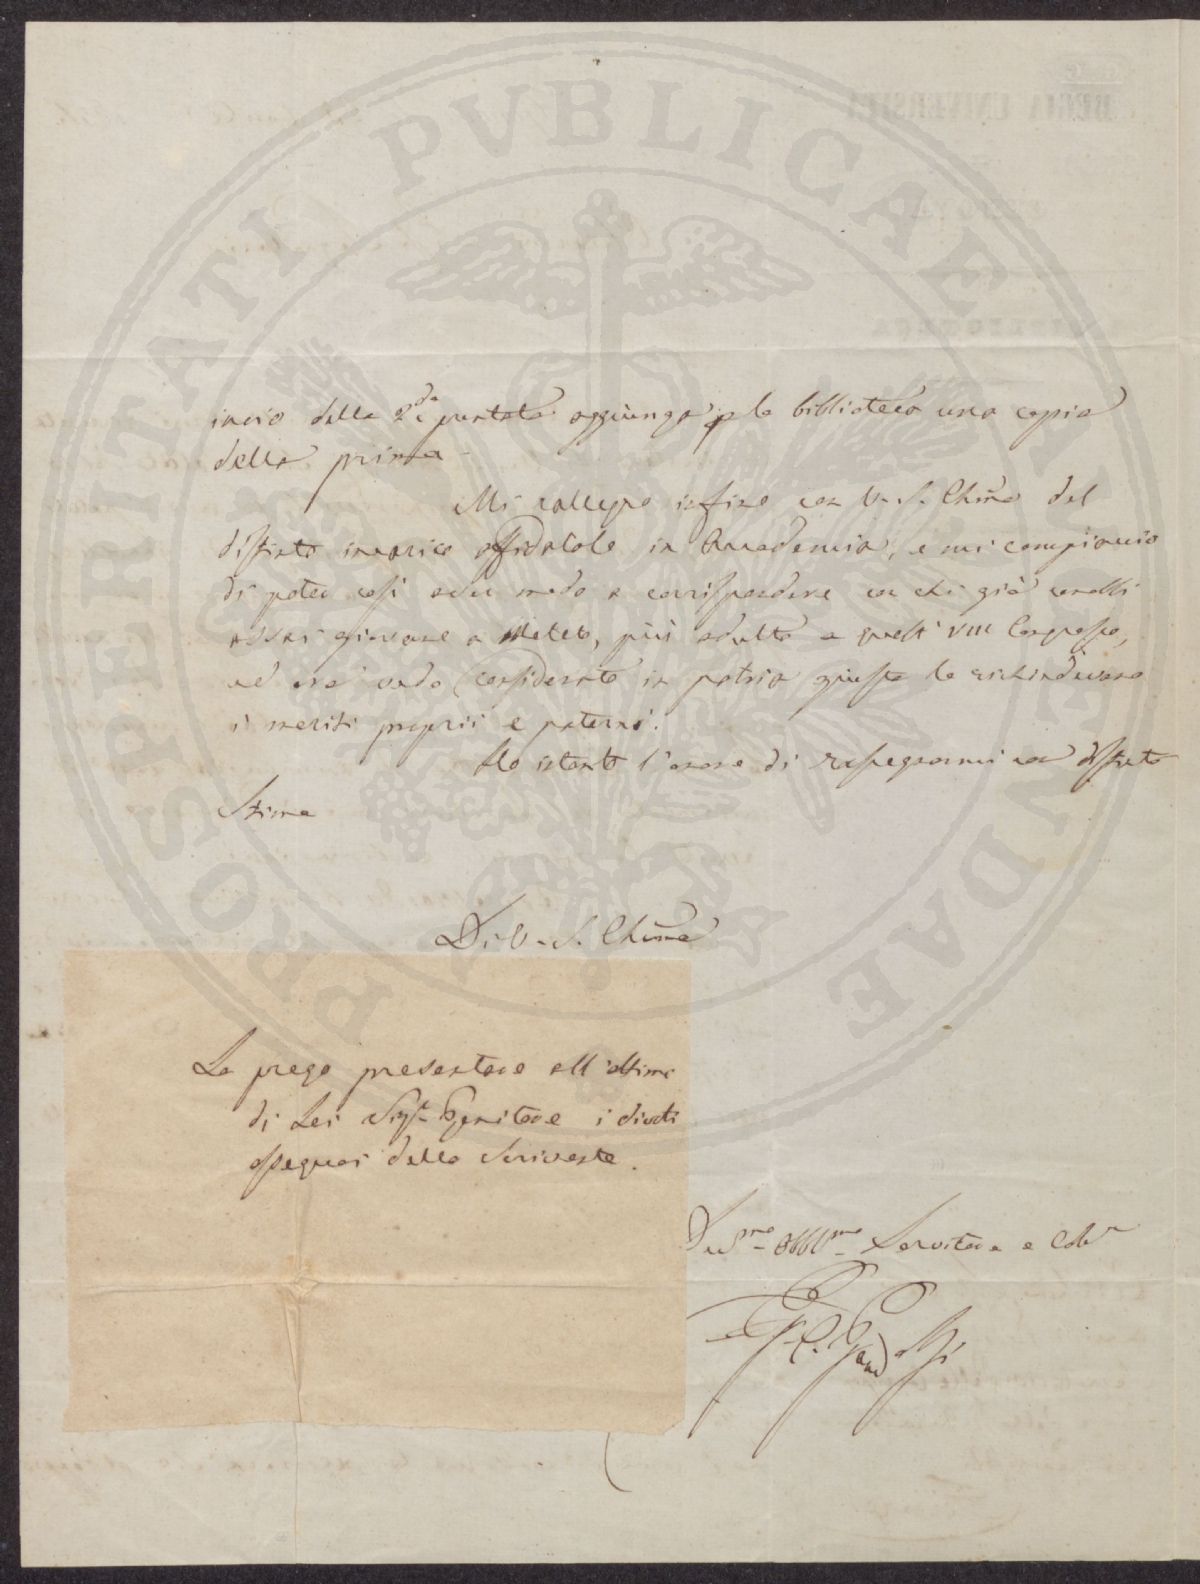 PROSPERITATI PVBLICAE AVGENDAE
REGIA UNIVERSITÀ
invio della 2.da puntata aggiungo p la biblioteca una copia
della prima
Mi rallegro infine con V. S. Chima del
distinto incarico affidatole in Accademia, e mi compiaccio
di poter così aver modo a corrispondere con chi già conobbi
assai giovane a Meleto, più adulto a questi VIII Congresso,
ed ora vedo considerato in patria giusta lo richiedevano
i meriti proprii e paterni.
Ho intanto l'onore di rassegnarmi con distinta
Stima
Di V. S. Chima
La prego presentare all'ottimo
di Lei Sigr Genitore i divoti
ossequi dello scrivente.
Devmo Obblmo Servitore e Collr
G. C. Gandolfi